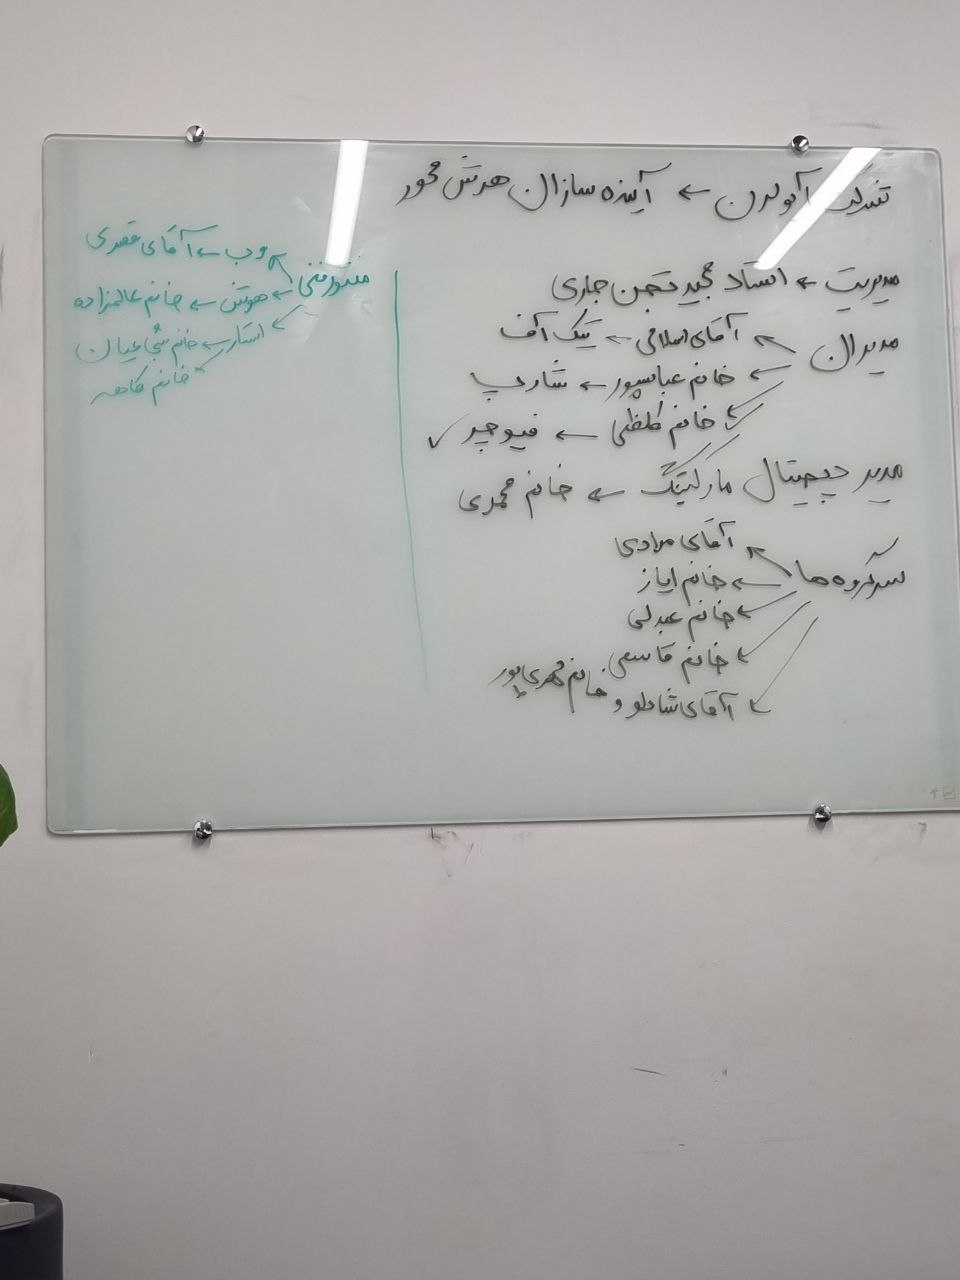 شرکت آنولرن ← آینده سازان هوش محور
مدیریت ← استاد مجید تجن جاری
مدیران ← آقای اسلامی ← تیک آف
← خانم عباسپور ← شارپ
← خانم لطفی ← فیوچر ✓
مدیر دیجیتال مارکتینگ ← خانم محمدی
سرگروه ها ← آقای مرادی
← خانم ایاز
← خانم عبدلی
← خانم قاسمی
← آقای شاملو و خانم مهدی پور
منتور فنی ← وب ← آقای
← هوش ← خانم عالمزاده
← استار ← خانم شجاعیان
← خانم